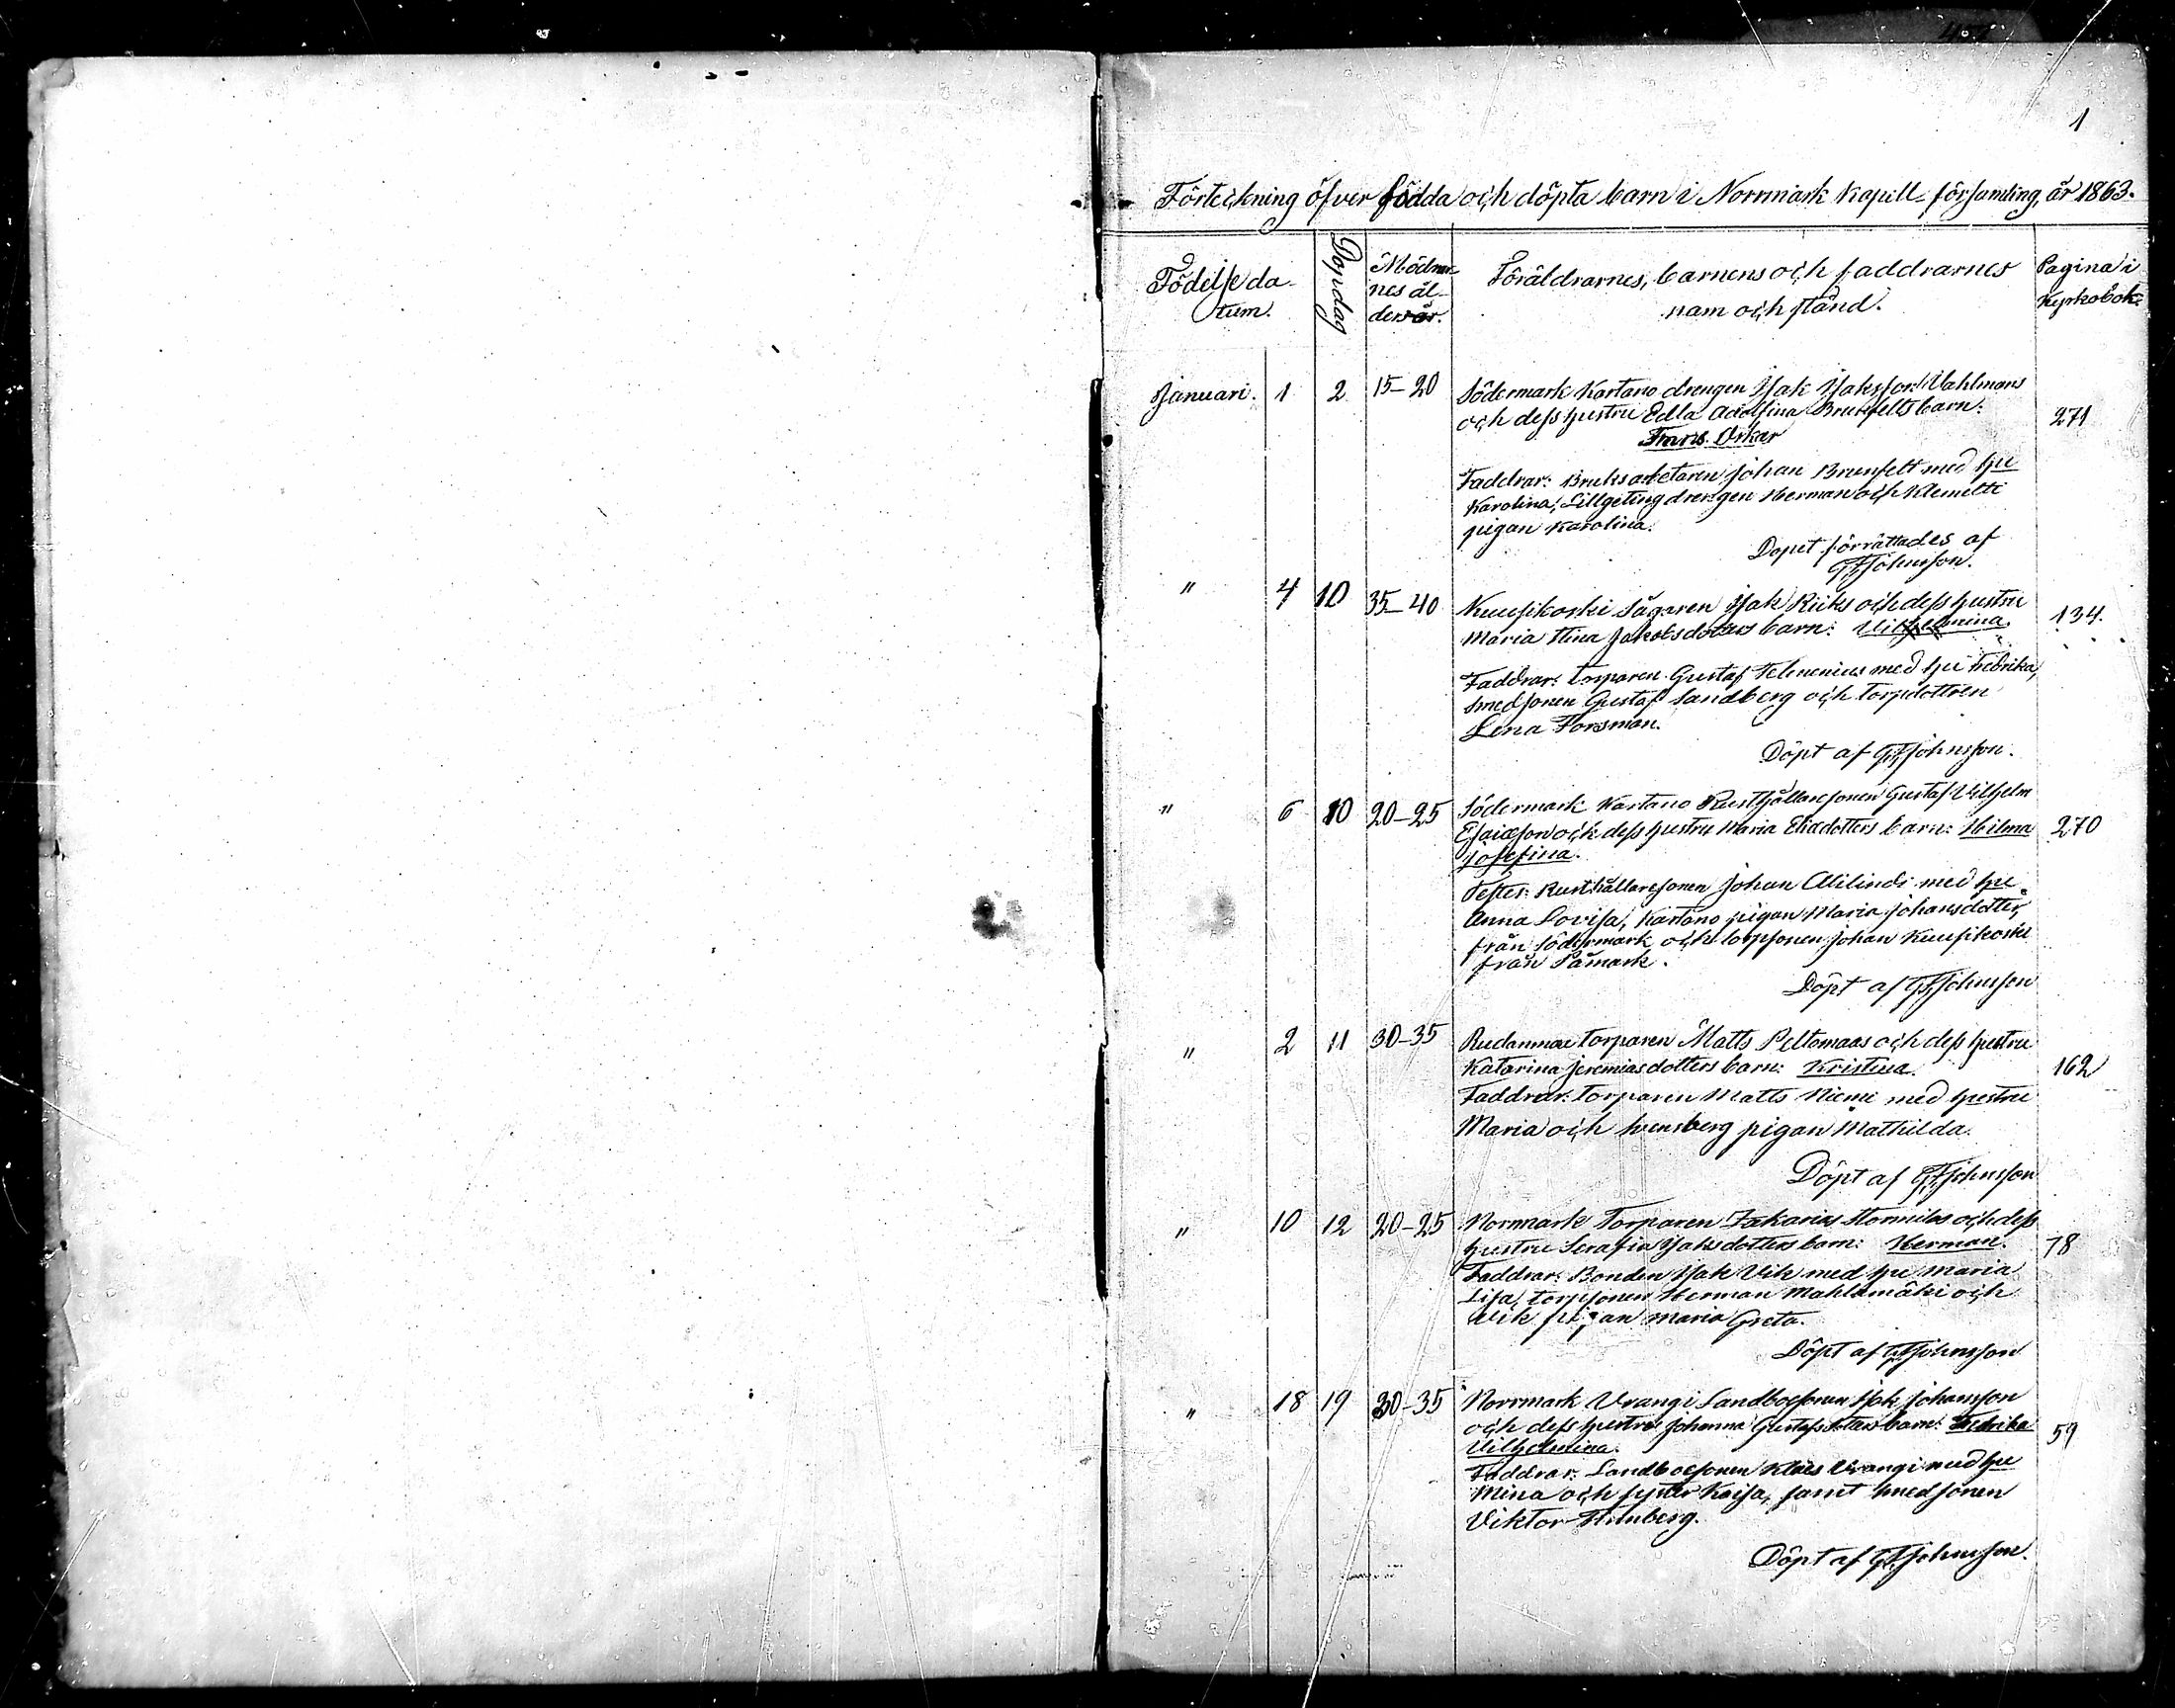 1
Förteckning öfver födda och döpta barn i Norrmark Kapell-församling, år 1863.
Födelseda-
tum.
Dopdag
Mödrar-
nes ål-
der år.
Föräldrarnes, barnens och faddrarnes
nam och stånd.
Pagina i
Kyrkobok:
Januari. 1 2 15-20 Södermark Kartano drengen Isak Isaksson Vahlmans
och dess hustru Edla Adolfina Brunfelts barn: 271
Frans Oskar
Faddrar: Bruksarbetaren Johan Brunfelt med hu
Karolina, Lillgeting drengen Herman och Klemetti
pigan Karolina.
Dopet förrättades af
GFJohnsson.
" 4 10 35-40 Kuusikoski Sågaren Isak Riiks och dess hustru 134.
Maria Stina Jakobsdotters barn: Vilhelmina.
Faddrar: torparen Gustaf Telenius med hu Fredrika,
smedsonen Gustaf Sandberg och torpdottren
Lena Forsman.
Döpt af GFJohnsson.
" 6 10 20-25 Södermark Kartano Rusthållaresonen Gustaf Vilhelm
Esaiæson och dess hustru Maria Eliædotters barn: Hilma 270
Josefina.
Testes: Rusthållaresonen Johan Alilindi med hu
Anna Lovisa, Kartano pigan Maria Johansdotter,
från Södermark och torpsonen Johan Kuusikoski
från Påmark.
Döpt af GFJohnsson
" 2 11 30-35 Rudanmaa torparen Matts Peltomaas och dess hustru
Katarina Jeremiasdotters barn: Kristina. 162
Faddrar: torparen Matts Niemi med hustru
Maria och Svensberg pigan Mathilda.
Döpt af GFJohnsson
" 10 12 20-25 Norrmark Torparen Zakarias och dess
hustru Serafia Isaksdotters barn: Herman. 78
Faddrar: Bonden Isak Vik med hu Maria
Lisa, torpsonen Herman Mahlamäki och
Vik pigan Maria Greta.
Döpt af GFJohnsson
" 18 19 30-35 Norrmark Vrangi Landboesonen Isak Johansson
och dess hustrus Johanna Gustafsdotters barn: Fredrika 59
Vilhelmina.
Faddrar: Landboesonen Klaes Vrangi med hu
Mina och syster Kaisa, samt smedsonen
Viktor
Döpt af GFJohnsson.